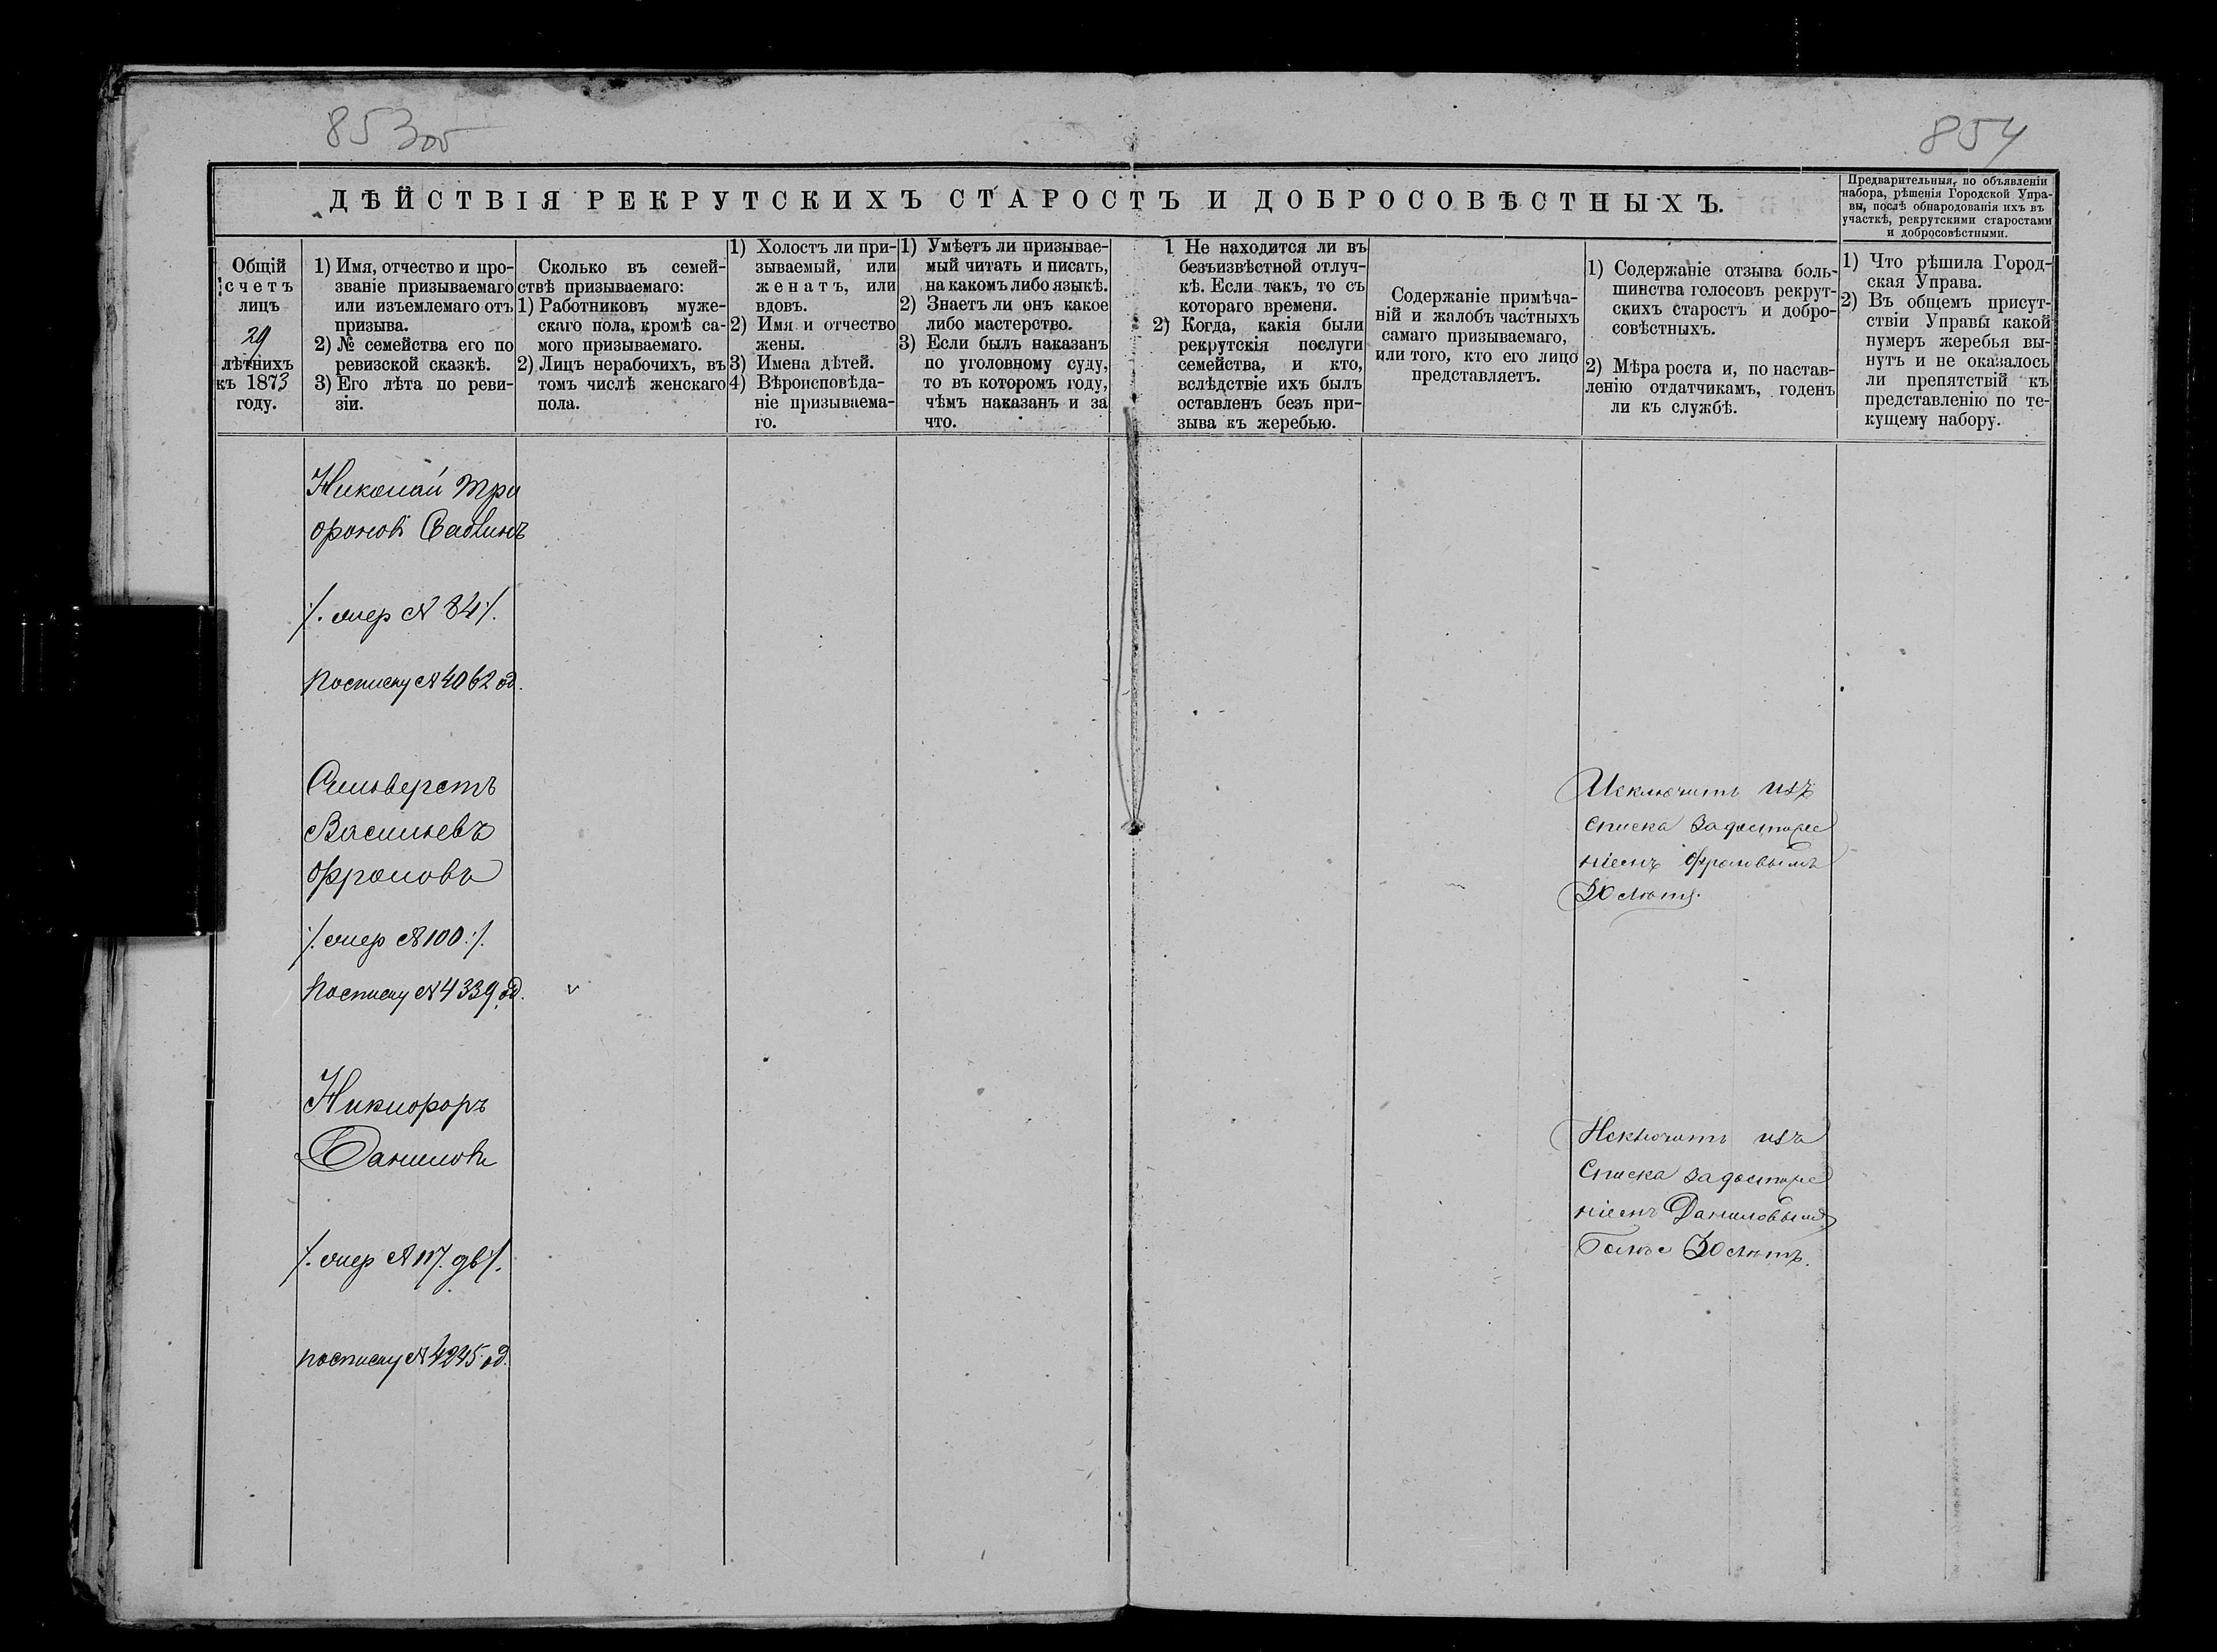 853об
854
ДѢЙСТВІЯ РЕКРУТСКИХЪ СТАРОСТЪ И ДОБРОСОВѢСТНЫХЪ.
Предварительныя, по объявленіи
набора, рѣшенія Городской Упра-
вы, послѣ обнародованія ихъ въ
участкѣ, рекрутскими старостами
и добросовѣстными.
Общій
счетъ
лицъ
29
лѣтнихъ
къ 1873
году.
1) Имя, отчество и про-
званіе призываемаго
или изъемлемаго отъ
призыва.
2) № семейства его по
ревизской сказкѣ.
3) Его лѣта по реви-
зіи.
Сколько въ семей-
ствѣ призываемаго:
1) Работниковъ муже-
скаго пола, кромѣ са-
мого призываемаго.
2) Лицъ нерабочихъ, въ
томъ числѣ женскаго
пола.
1) Холостъ ли при-
зываемый, или
женатъ, или
вдовъ.
2) Имя и отчество
жены.
3) Имена дѣтей.
4) Вѣроисповѣда-
ніе призываема-
го.
1) Умѣетъ ли призывае-
мый читать и писать,
на какомъ либо языкѣ.
2) Знаетъ ли онъ какое
либо мастерство.
3) Если былъ наказанъ
по уголовному суду,
то въ которомъ году,
чѣмъ наказанъ и за
что.
1 Не находится ли въ
безъизвѣстной отлуч-
кѣ. Если такъ, то съ
котораго времени.
2) Когда, какія были
рекрутскія послуги
семейства, и кто,
вслѣдствіе ихъ былъ
оставленъ безъ при-
зыва къ жеребью.
Содержаніе примѣча-
ній и жалобъ частныхъ
самаго призываемаго,
или того, кто его лицо
представляетъ.
1) Содержаніе отзыва боль-
шинства голосовъ рекрут-
скихъ старостъ и добро-
совѣстныхъ.
2) Мѣра роста и, по настав-
ленію отдатчикамъ, годенъ
ли къ службѣ.
1) Что рѣшила Город-
ская Управа.
2) Въ общемъ присут-
ствіи Управы какой
нумеръ жеребья вы-
нутъ и не оказалось
ли препятствій къ
представленію по те-
кущему набору.
Николай Три
фоновъ Савинъ
/. 84 /.
посписку № 4062 од.
Сильверстъ
Васильевъ
Фроловъ
/. № 100 ./.
посписку № 4339 од.
Исключить изъ
списка задостиже
ніемъ Фроловымъ
30 лѣтъ.
Никифоръ
Даниловъ
/. № 117. дв /.
посписку № 4245 од.
Исключить изъ
списка задостиже
ніемъ Даниловымъ
Болѣе 30 лѣтъ.